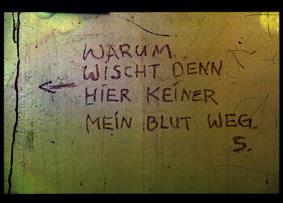 WARUM
WISCHT DENN
HIER KEINER
MEIN BLUT WEG.
S.